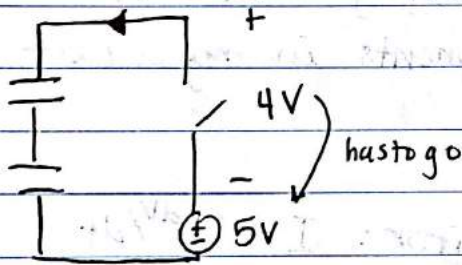 +
4V
has to go
-
± 5V